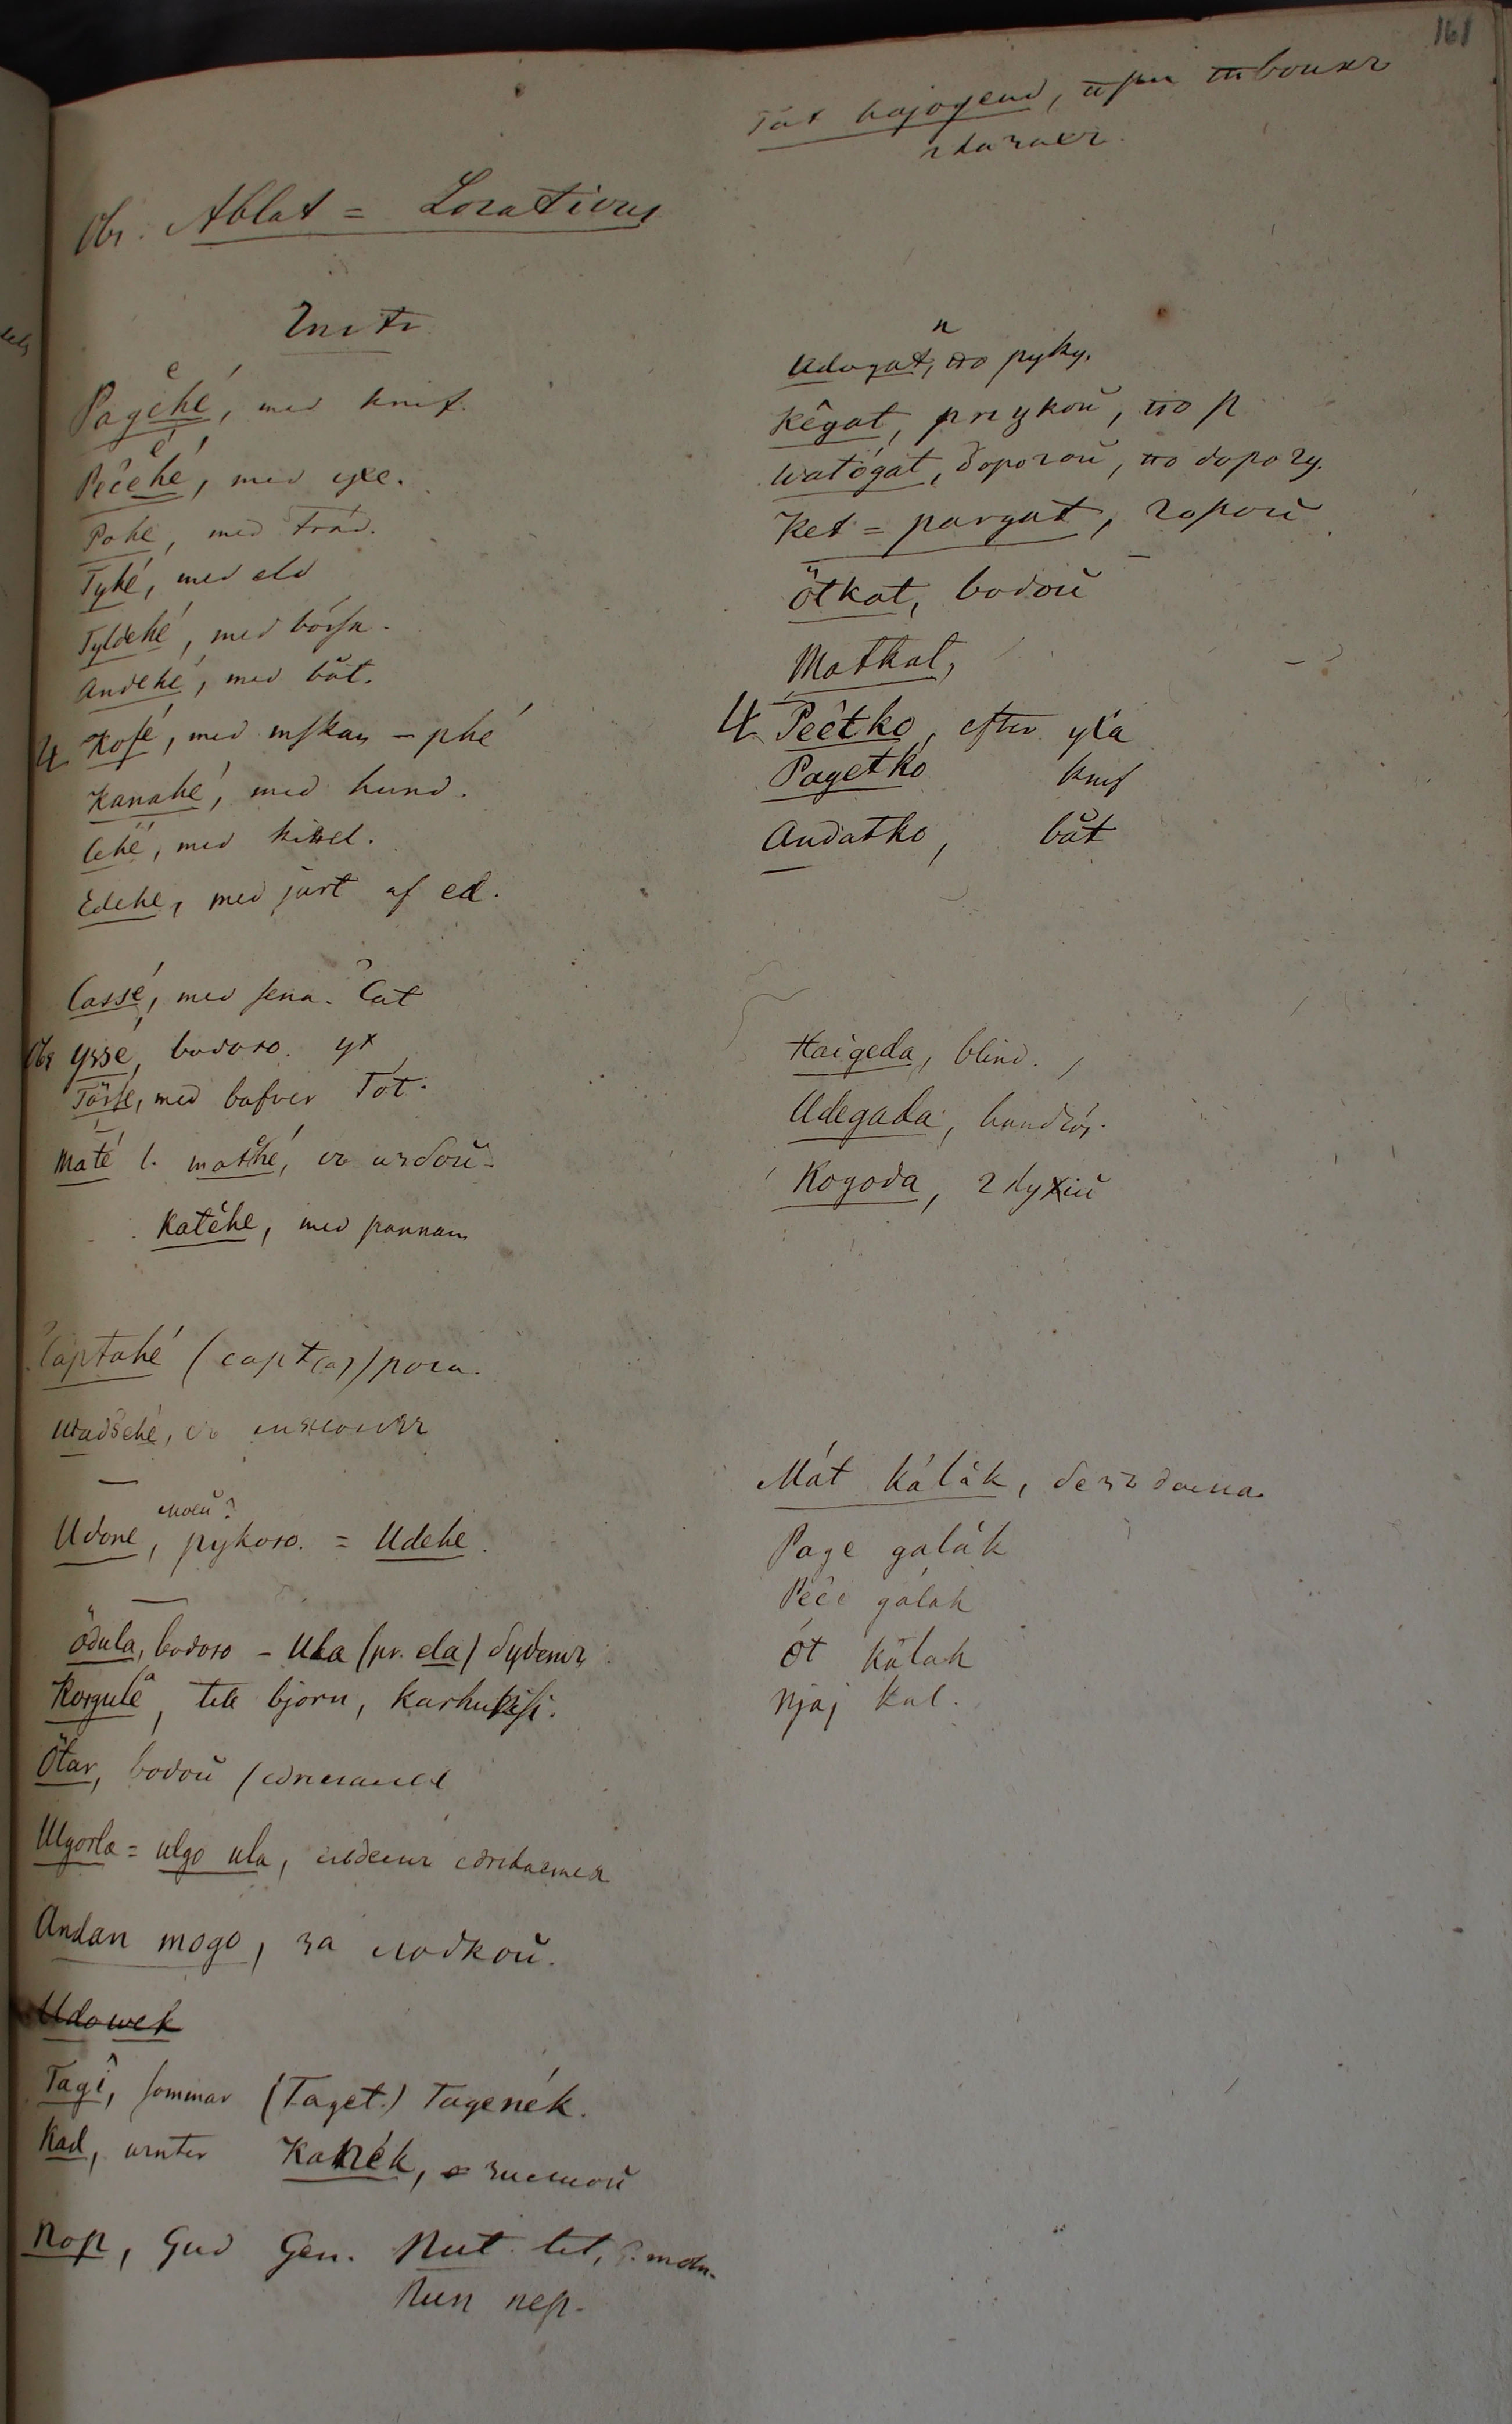 161
Tat kajogend, при твоихъ
глазахъ.
Obs. Ablat = Locativus
Instr.
Pagĕhé, med knif.
Pečehé, med yxe.
Pohe, med träd.
Tyhé, med eld
Tyldehé, med bössa.
Andehé, med båt.
4 Kofé, med mskan – phé
Kanahé, med hund.
Čehé, med kittel.
Edehe, med järt af ed.
Čassé, med sena. Čat
Obs ysse, водою. yt
Tässe, med bäfver Tät.
Maté l. mathé, съ избой
Katéhe, med pannan
Čaptahé (capt(a)) рога.
Wadšehé, съ мясомъ
Udone, моей? рукою. = Udehe.
Ödula, водою – Ula (pr. ela) будемъ
Korgula, till björn, karhuksi.
Ötar, водой
Ulgorla = ulgo ula, льдемъ сдѣлается
Andan mogo, за лодкой.
Udowek
Tagî, sommar (Taget.) Tagenék.
Kad, winter Kanék, зимой
Nop, Gud Gen. Nut. tet,
Nun nep.
Udogat, по руку.
Kêgat, по р
Watógat, дорогой, по дорогу.
Ket = pargat, горой
Ötkat, водой
Matkat,
4 Peĉtko, efter yxa
Pagetko knif
Andatko, båt
Haigeda, blind.
Udegada, handlös.
Kogoda, глухій
Mát kálák, безъ дома
Page galák
Peče galak
Öt kälak
Njaj kal.